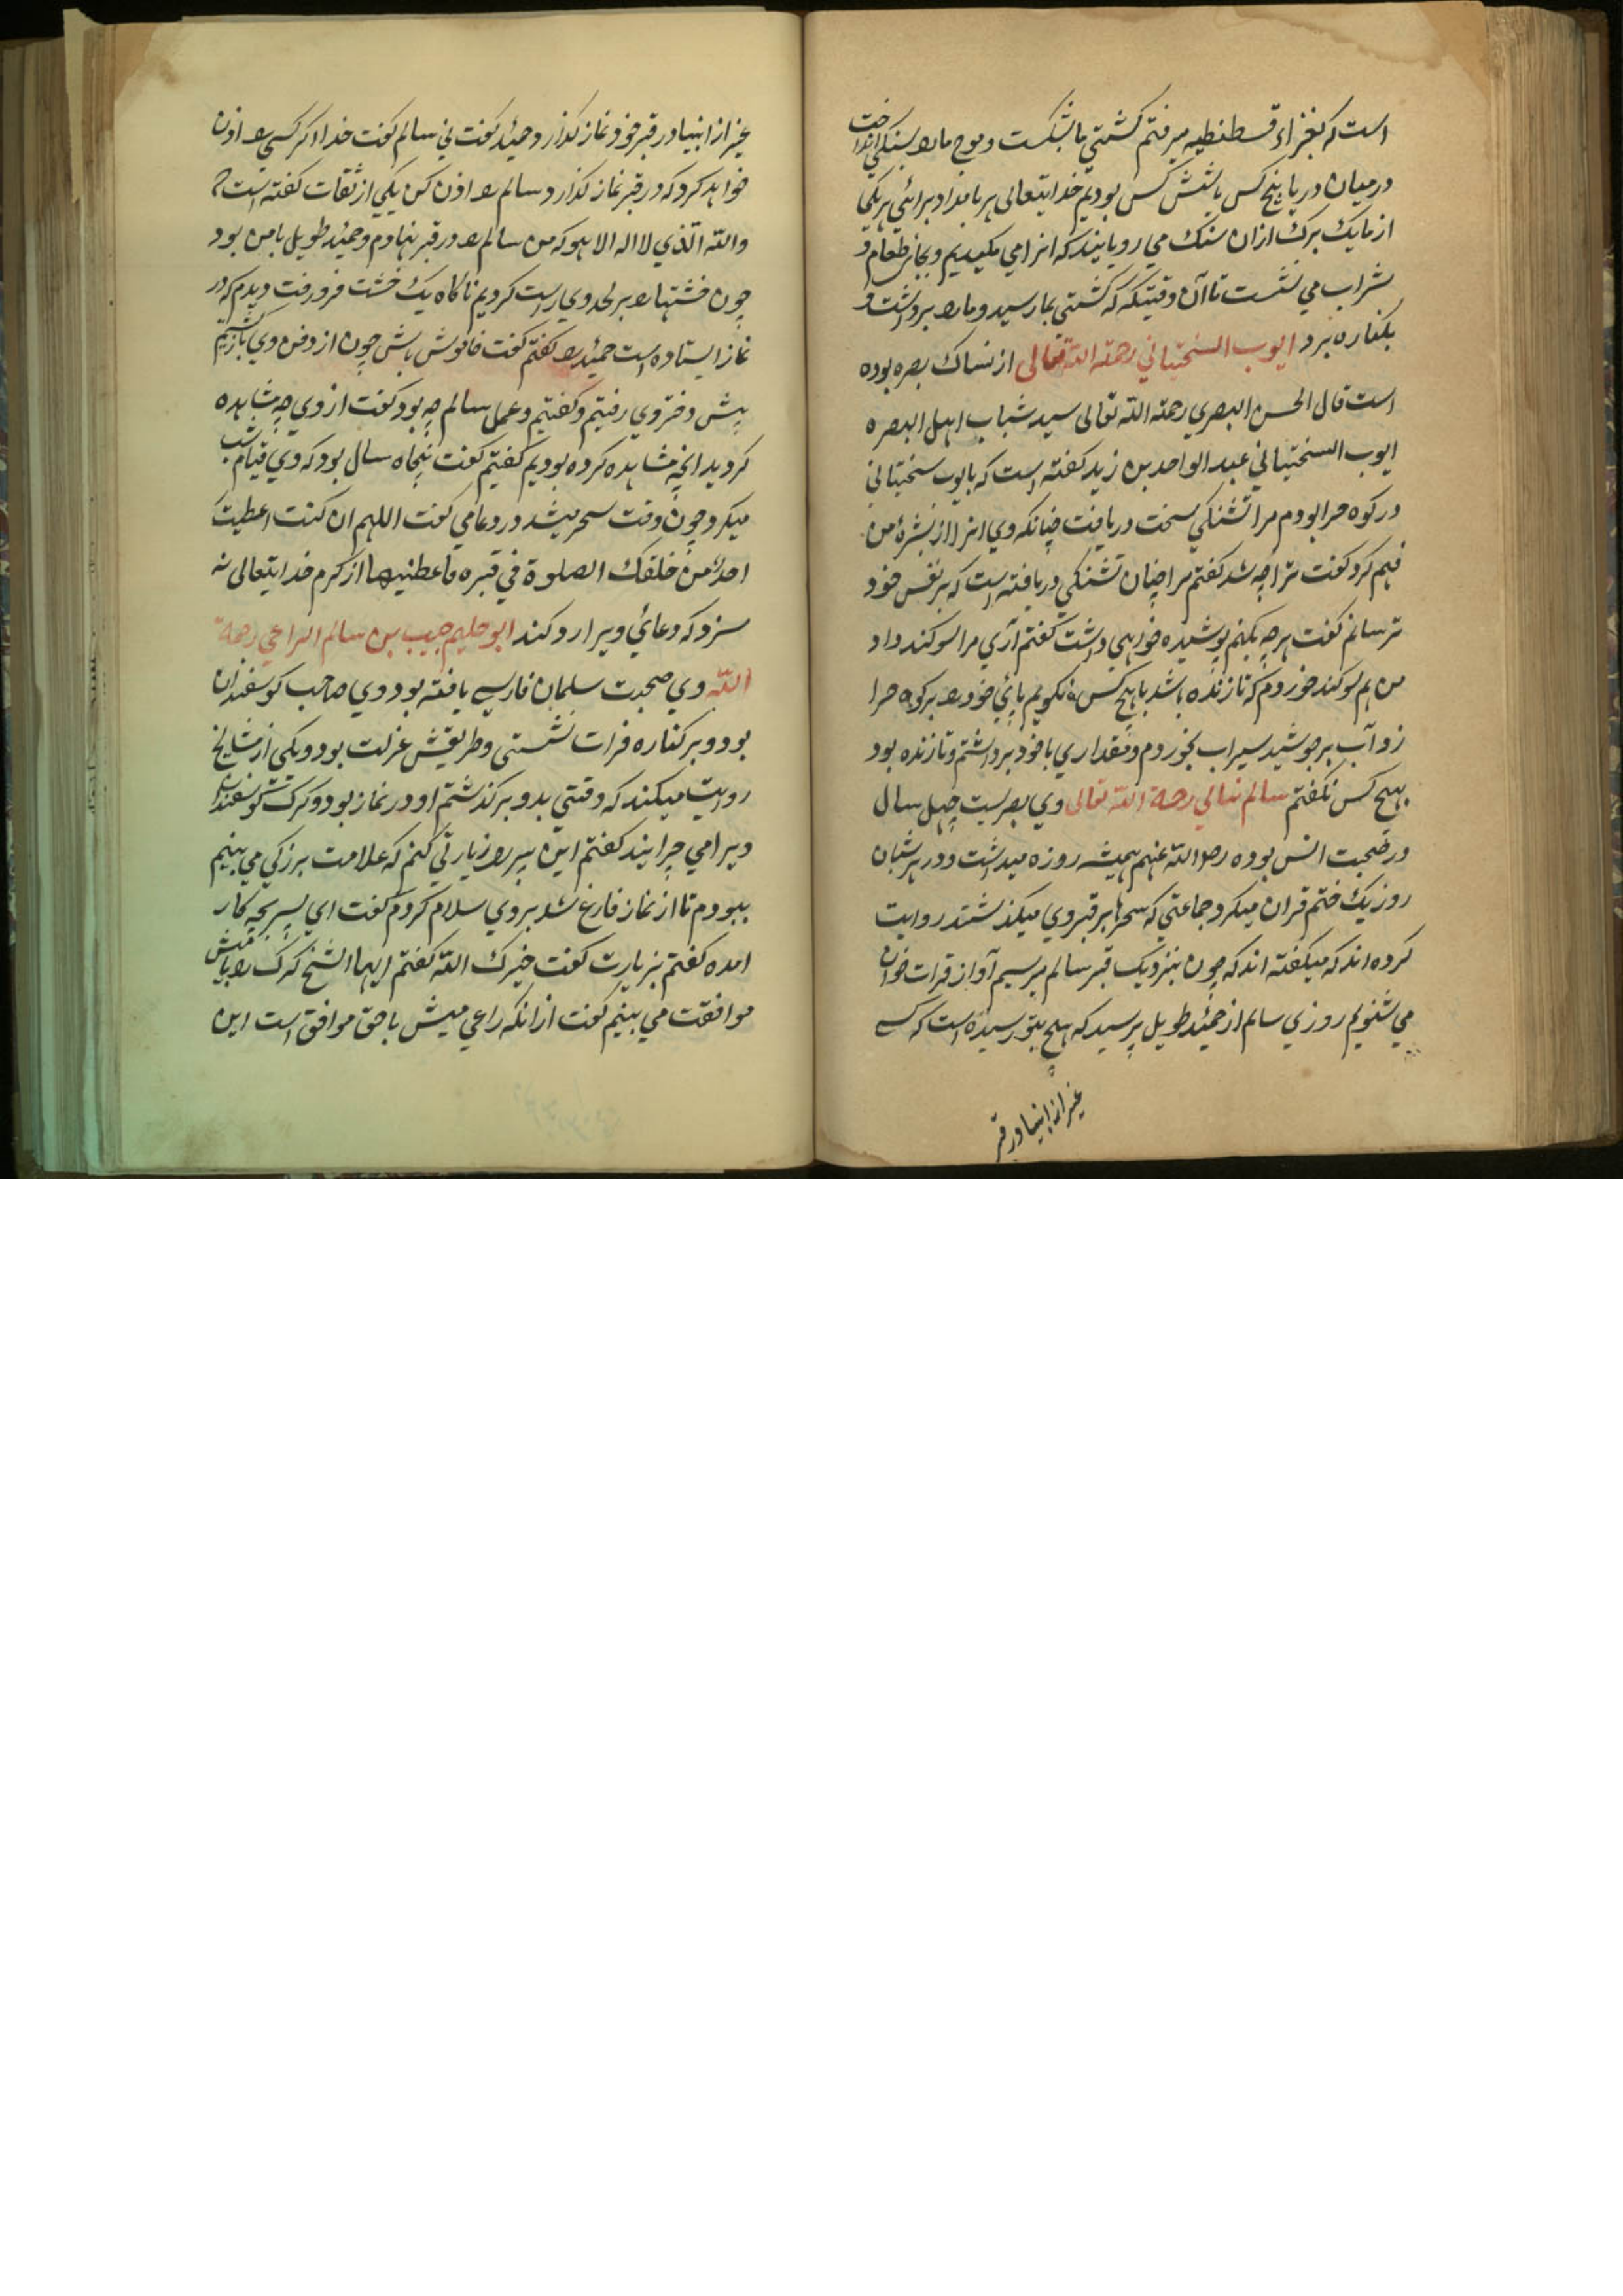 است که بغزاء قسطنطیه میرفتم کشتی ما بشکست و موج ما را بسنکی انداخت
در میان دریا پنج کس یا شش کس بودیم خدایتعالی هر بامداد برائی هر یکی
از ما یک برک ازان سنک می رویانید که انرا می مکیدیم و بجای طعام و
شراب می نشست تا آن وقتیکه که کشتی بما رسید و ما را برداشت و
بکناره برد ایوب السختیانی رحمة الله تعالی از نساک بصره بوده
است قال الحسن البصري رحمة الله تعالی سید شباب اهل البصره
ایوب السختیانی عبد الواحد بن زید کفته است که با ایوب سختیانی
در کوه حرا بودم مرا تشنکی سخت دریافت چنانکه وی انرا از بشرهٔ من
فهم کرد کفت ترا چه شد کفتم مرا چنان تشنکی دریافته است که بر نفس خود
ترسانم کفت هرچه بکنم پوشیده خواهی داشت کفتم آری مرا سوکند داد
من هم سوکند خوردم که تا زنده باشد با هیچ کس نکویم پای خود را بر کوه حرا
زد آب برجوشید سیراب بخوردم و مقداری با خود برداشتم و تا زنده بود
بهیچ کس نکفتم سالم بنانی رحمة الله تعالی وی بصریست چهل سال
در صحبت انس بوده رضی الله عنهم همیشه روزه میداشت و در هر شبان
روز یک ختم قران میکرد جماعتی که سحرها بر قبر وی میکذشتند روایت
کرده اند که میکفته اند که چون بنزدیک قبر سالم میرسیم آواز قرات خوان
می شنویم روزی سالم از حمید طویل پرسید که هیچ بتو رسیده است که کسی
غیر از انبیا در قبر
غیر از انبیا در قبر خود نماز کذارد حمید کفت نی سالم کفت خدا اکر کسی را اذن
خواهد کرد که در قبر نماز کذارد سالم را اذن کن یکی از ثقات کفته است که
والله الذي لا اله الا هو که من سالم را در قبر نهادم و حمید طویل با من بود
چون خشتها را بر لحد وی راست کردیم ناکاه یک خشت فرو رفت دیدم که در
نماز ایستاده است حمید را کفتم کفت خاموش باش چون از دفن وی باز کشتیم
پیش دختر وی رفتیم و کفتیم و عمل سالم چه بود کفت از وی چه مشاهده
کردید انچه مشاهده کرده بودیم کفتیم کفت پنجاه سال بود که وی قیام شب
میکرد چون وقت سحر میشد در دعا می کفت اللهم ان کنت اعطیت
احدا من خلقک الصلوة في قبره فاعطنیها از کرم خدایتعالی نه
سزد که دعائی ویرا رد کند ابو حلیم حبیب بن سالم الراعي رحمة
الله وی صحبت سلمان فارسی یافته بود وی صاحب کوسفندان
بود و بر کناره فرات نشستی و طریقش عزلت بود و یکی از مشایخ
روایت میکند که وقتی بدو برکذشتم او در نماز بود و کرک کوسفندان
ویرا می چرانید کفتم این پیر را زیارتی کنم که علامت بزرکی می بینم
ببودم تا از نماز فارغ شد بر وی سلام کردم کفت ای پسر بچه کار
امده کفتم بزیارت کفت خیرک الله کفتم ایها الشیخ کرک را با میش
موافقت می بینم کفت ازانکه راعی میش با حق موافق است این